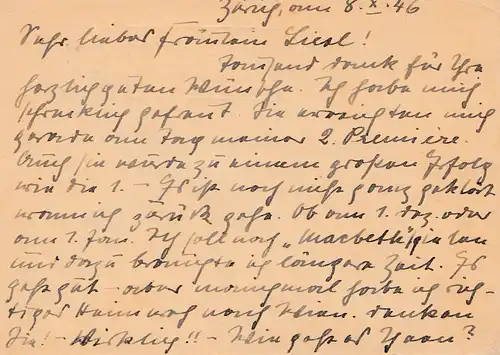 Zürich, am 8.X.46
Sehr liebes Fräulein Liesl!
Tausend Dank für Ihre
herzlichguten Wünsche. Ich habe mich
schrecklich gefreut. Sie erreichten mich
gerade am Tag meiner 2. Premiere.
Auch sie wurde zu einem großen Erfolg
wie die 1. – Es ist noch nicht ganz geklärt
wann ich zurück gehe. Ob am 1. Dez. oder
am 1. Jan. Ich soll noch „Macbeth" spielen
und dazu benötigte ich längere Zeit. Es
geht gut – aber manchmal habe ich rich-
tiges Heimweh nach Wien. Denken
Sie! – Wirklich!! – Wie geht es Ihnen?